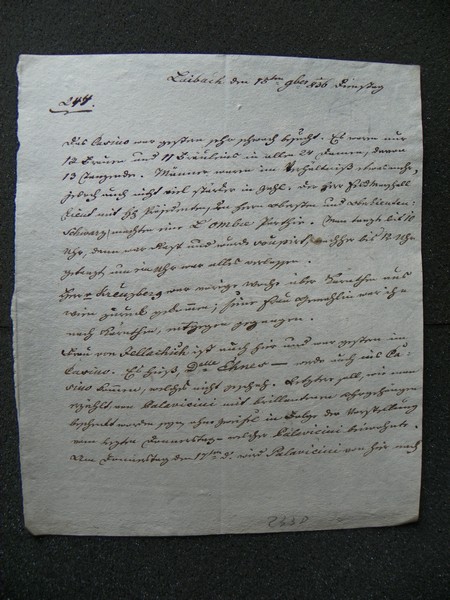 Laibach den 15ten 9ber 1836 Dienstag
244.
Das Casino war gestern sehr schwach besucht. Es waren nur
12 Frauen und 11 Fräuleins in allen 24 Damen, davon
13 Tanzende. Männer waren im Verhältniß etwas mehr,
jedoch auch nicht viel stärker in Zahl. Der Herr Feldmarschall
Lieut mit H Präsidenten, den Herrn Obersten und
Schwarz machten eine L'ombre Parthie. Man tanzte bis 10
Uhr, dann war Rast und wurde soupirt, nachher bis 12 Uhr
getanzt, um ein Uhr war alles verlassen.
Herr Kreuzberg war vorige Woche über Kärnthen aus
Wien zurück gekommen; seine Frau Gemahlin war ihm
nach Kärnthen entgegen gegangen.
Frau von ist auch hier und war gestern im
Casino. Es hieß, Delle werde auch ins Ca-
sino kommen, welches nicht geschah. Letztere soll, wie man
erzählt von Palavicini mit brillantenen Ohrgehängen
beschenkt worden seyn, ohne Zweifel in Folge der Vorstellung
vom letzten Donnerstag, welcher Palavicini beiwohnte.
Am Donnerstag den 17ten d. wird Palavicini von hier nach